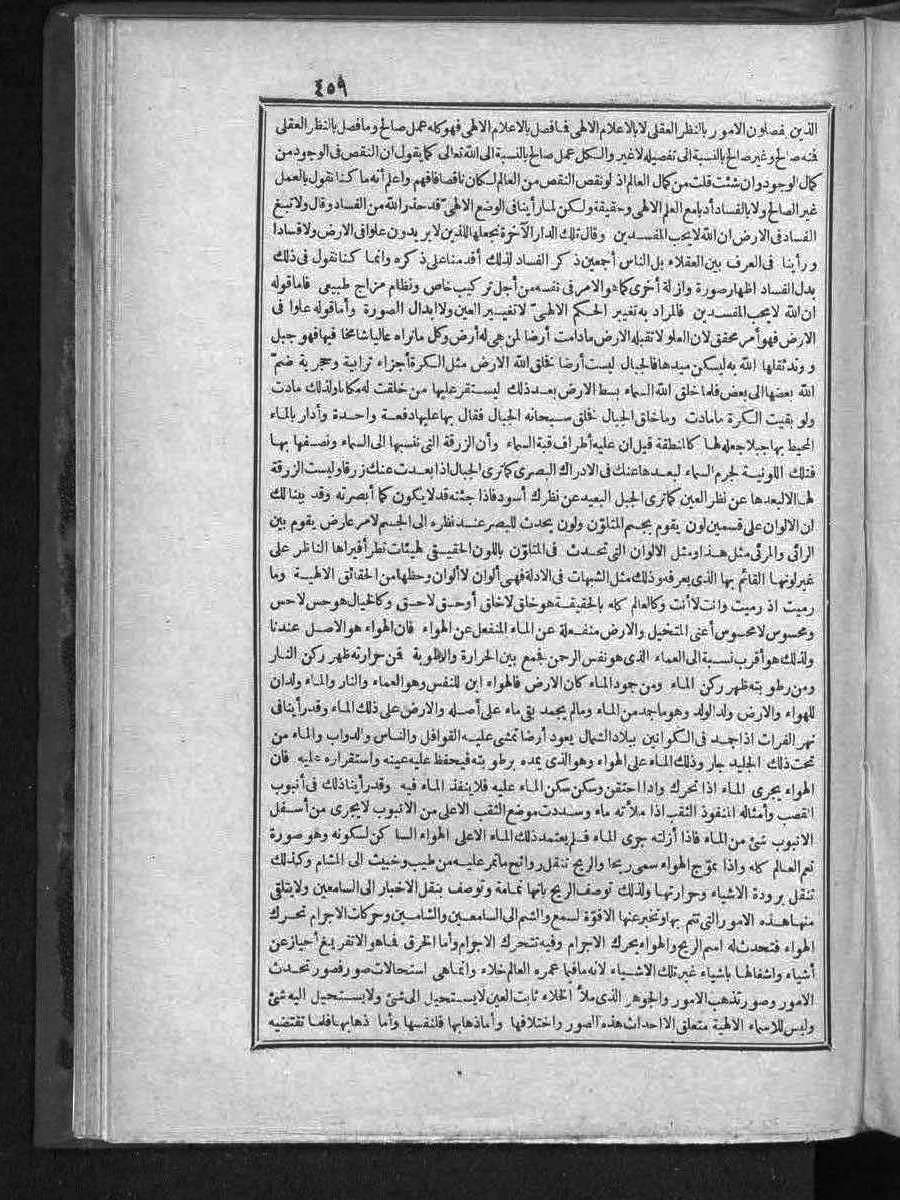 ٤٥٩
الذين يفصلون الامور بالنظر العقلى لا بالاعلام الالهى فما فصل بالاعلام الالهى فهو كله عمل صالح وما فصل بالنظر العقلى
فمنه صالح وغير صالح بالنسبة الى تفصيله لا غير والكل عمل صالح بالنسبة الى الله تعالى كما يقول ان النقص فى الوجود من
كمال الوجود وان شئت قلت من كمال العالم اذ لو نقص النقص من العالم لكان ناقصا فافهم واعلم أنه ما كنا نقول بالعمل
غير الصالح ولا بالفساد أدبا مع العلم الالهى وحقيقة ولكن لما رأينا فى الوضع الالهىّ قد حذر الله من الفساد وقال ولا تبغ
الفساد فى الارض ان الله لا يحب المفسدين وقال تلك الدار الآخرة نجعلها للذين لا يريدون علوا فى الارض ولا فسادا
ورأينا فى العرف بين العقلاء بل الناس أجمعين ذكر الفساد لذلك أقدمنا على ذكره وانما كنا نقول فى ذلك
بدل الفساد اظهار صورة وازلة أخرى كما هو الامر فى نفسه من أجل تركيب خاص ونظام مزاج طبيعى فاما قوله
ان الله لا يحب المفسدين فالمراد به تغيير الحكم الالهىّ لا تغيير العين ولا ابدال الصورة وأما قوله علوا فى
الارض فهو أمر محقق لان العلو لا تقبله الارض مادامت أرضا لمن هى له أرض وكل ما تراه عاليا شامخا فيها فهو جبل
ووتد ثقلها الله به ليسكن ميدها فالجبال ليست أرضا فخلق الله الارض مثل الكرة أجزاء ترابية وحجرية ضمّ
الله بعضها الى بعض فلما خلق الله السماء بسط الارض بعد ذلك ليستقر عليها من خلقت له مكانا ولذلك مادت
ولو بقيت الكرة ما مادت وما خلق الجبال فخلق سبحانه الجبال فقال بها عليها دفعة واحدة وأدار بالماء
المحيط بها جبلا جعله لها كالمنطقة قيل ان عليه أطراف قبة السماء وأن الزرقة التى ننسبها الى السماء ونصفها بها
فتلك اللونية لجرم السماء لبعدها عنك فى الادراك البصرى كما ترى الجبال اذا بعدت عنك زرقا وليست الزرقة
لها الا لبعدها عن نظر العين كما ترى الجبل البعيد عن نظرك أسود فاذا جئته قد لا يكون كما أبصرته وقد بينا لك
ان الالوان على قسمين لون يقوم بجسم المتلوّن ولون يحدث للبصر عند نظره الى الجسم لامر عارض يقوم بين
الرائى والمرئى مثل هذا ومثل الالوان التى تحدث فى المتلوّن باللون الحقيقى لهيئات تطرأ فيراها الناظر على
غير لونها القائم بها الذى يعرفه وذلك مثل الشبهات فى الادلة فهى ألوان لا ألوان وحظها من الحقائق الالهية وما
رميت اذ رميت وانت لا أنت وكالعالم كله بالحقيقة هو خلق لا خلق أو حق لا حق وكالخيال هو حس لا حس
ومحسوس لا محسوس أعنى المتخيل والارض منفعلة عن الماء المنفعل عن الهواء فان الهواء هو الاصل عندنا
ولذلك هو أقرب نسبة الى العماء الذى هو نفس الرحمن فجمع بين الحرارة والرطوبة فمن حرارته ظهر ركن النار
ومن رطوبته ظهر ركن الماء ومن جود الماء كان الارض فالهواء ابن للنفس وهو العماء والنار والماء ولدان
للهواء والارض ولد الولد وهو ما جمد من الماء وما لم يجمد بقى ماء على أصله والارض على ذلك الماء وقد رأينا فى
نهر الفرات اذا جمد فى الكوانين ببلاد الشمال يعود أرضا تمشى عليه القوافل والناس والدواب والماء من
تحت ذلك الجليد جار وذلك الماء على الهواء وهو الذى يمده برطوبته فيحفظ عليه عينه واستقراره عليه فان
الهواء يجرى الماء اذا تحرك واذا احتقن وسكن سكن الماء عليه فلا ينفذ الماء فيه وقد رأينا ذلك فى أنبوب
القصب وأمثاله المنفوذ الثقب اذا ملأته ماء وسددت موضع الثقب الاعلى من الانبوب لا يجرى من أسفل
الانبوب شئ من الماء فاذا أزلته جرى الماء فلم يعتمد ذلك الماء الاعلى الهواء الساكن لسكونه وهو صورة
تعم العالم كله واذا تموّج الهواء سمى ريحا والريح تنقل روائح ما تمر عليه من طيب وخبيث الى المشام وكذلك
تنقل برودة الاشياء وحرارتها ولذلك توصف الريح بانها نمامة وتوصف بنقل الاخبار الى السامعين ولا يتلقى
منها هذه الامور التى تتم بها وتخبر عنها الا قوّة السمع والشم الى السامعين والشامين وحركات الاجرام تحرك
الهواء فتحدث له اسم الريح والهواء يحرك الاجرام وفيه تتحرك الاجرام وأما الخرق فما هو الا تفريغ أحياز عن
أشياء واشغالها باشياء غير تلك الاشياء لانه ما فيما عمره العالم خلاء وانما هى استحالات صور فصور تحدث
الامور وصور تذهب الامور والجوهر الذى ملأ الخلاء ثابت العين لا يستحيل الى شئ ولا يستحيل اليه شئ
وليس للاسماء الالهية متعلق الا احداث هذه الصور واختلافها وأما ذهابها فلنفسها وأما ذهابها فلما تقتضيه